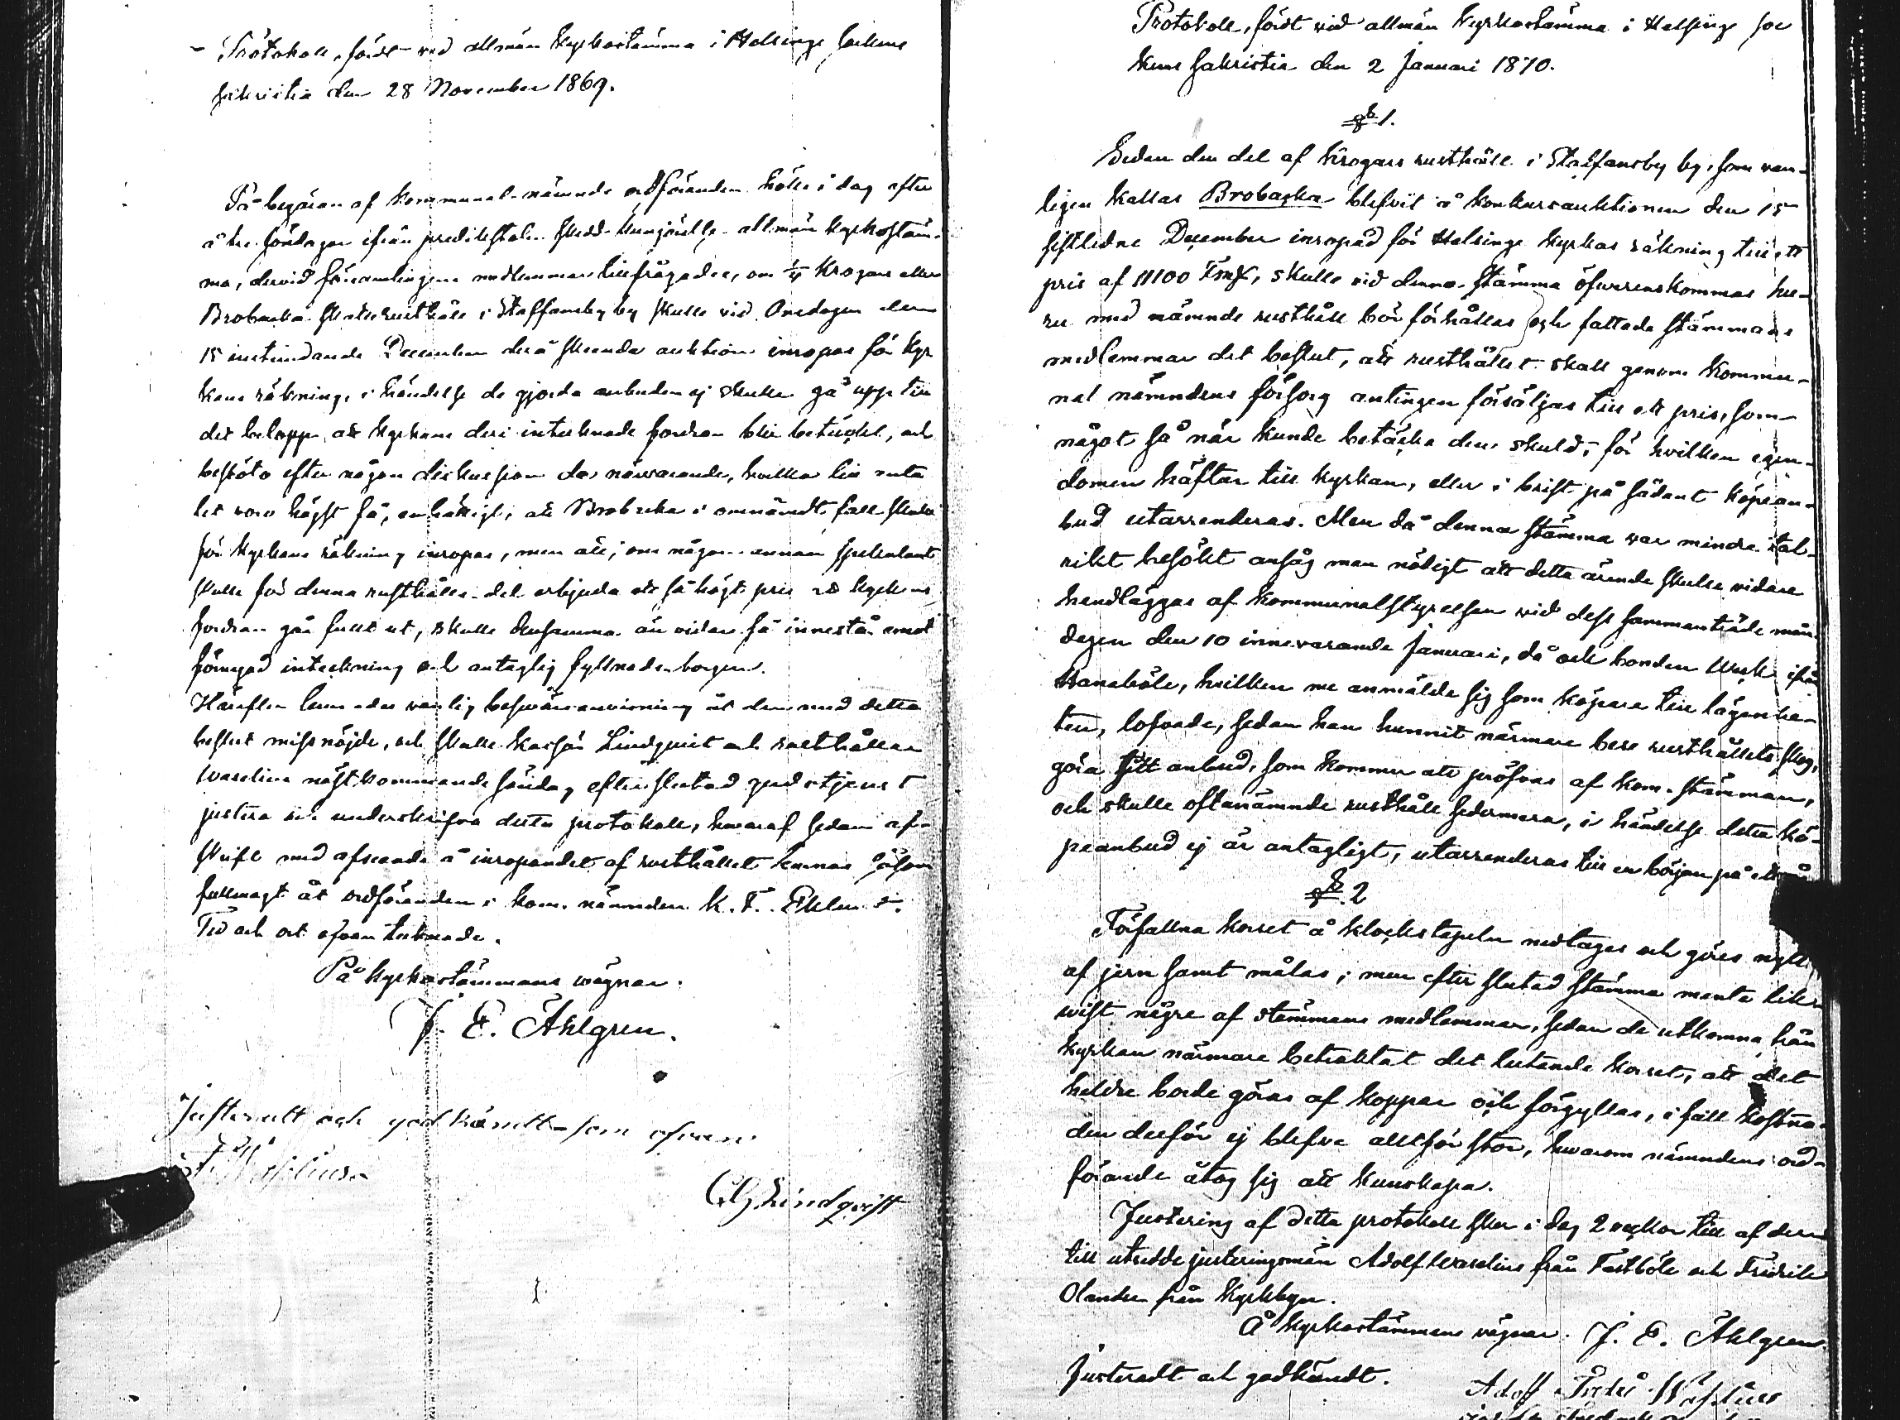 Protokoll, fördt vid allmän Kyrkostämma i Helsinge sockens
sakristia den 28 November 1869.
På begäran af Kommunal-nämnds ordföranden hölls i dag efter
å tre söndagar ifrån predikstolen skedd kungörelse allmän Kyrkostäm-
ma, dervid församlingens medlemmar tillfrågades, om 1/4 Krogars eller
Brobacka skatterusthåll i Staffansby by skulle vid Onsdagen den
15 instundande December derå skeende auktion inropas för Kyr
kans räkning, i händelse de gjorda anbuden ej skulle gå upp till
det belopp, att Kyrkans deri intecknade fordran blir betäckt, och
beslöto efter någon diskussion de närvarande, hvilka till anta
let voro högst få, enhälligt, att Brobacka i omnämndt fall skulle
för Kyrkans räkning inropas, men att, om någon annan spekulant
skulle för denna rusthålls del erbjuda ett så högt pris att Kyrkans
fordran går fullt ut, skulle densamma än vidare få innestå emot
förnyad inteckning och antaglig fyllnadsborgen.
Härefter lemnades vanlig besvärsanvisning åt den med detta
beslut missnöjde, och skulle Lindqvist och rusthållaren
Waselius nästkommande söndag efter slutad gudstjenst
justera och underskrifva detta protokoll, hvaraf sedan af-
skrift med afseende å inropandet af rusthållet lemnas såsom
fullmagt åt ordföranden i kom. nämnden K. F. Eklund.
Tid och ort ofvan tecknade.
På Kyrkostämmans vägnar.
J. E. Åhlgren.
Justeradt och godkändt som ofvan
Waselius
Lindqvist
Protokoll, fördt vid allmän Kyrkostämma i Helsinge soc
kens sakristia den 2 Januari 1870.
§ 1.
Sedan den del af Krogars rusthåll i Staffansby by, som van-
ligen kallas Brobacka blefvit å konkursauktionen den 15
sistledne December inropad för Helsinge Kyrkas räkning till ett
pris af 11100 Fmk, skulle vid denna stämma öfverenskommas hu-
ru med nämnde rusthåll bör förhållas och fattade stämmans
medlemmar det beslut, att rusthållet skall genom Kommu-
nal nämndens försorg antingen försäljas till ett pris, som
något så när kunde betäcka den skuld, för hvilken egen-
domen häftar till Kyrkan, eller i brist på sådant köpean-
bud utarrenderas. Men då denna stämma var mindre tal-
rikt besökt ansåg man nödigt att detta ärende skulle vidare
handläggas af Kommunalstyrelsen vid dess sammanträde mån-
dagen den 10 innevarande Januari, då och bonden ifrån
Hanaböle, hvilken nu anmälde sig som köpare till lägenhe-
ten, lofvade, sedan han hunnit närmare bese rusthållets skog,
göra sitt anbud, som kommer att pröfvas af kom. stämman,
och skulle oftanämnde rusthåll sedermera, i händelse detta kö-
peanbud ej är antagligt, utarrenderas till en början på ett år
§ 2
Förfallna korset å klockstapeln nedtages och göres nytt
af jern samt målas; men efter slutad stämma mente lik-
visst någre af stämmans medlemmar, sedan de utkomna från
kyrkan närmare betraktat det lutande korset, att det
heldre borde göras af koppar och förgyllas, i fall kostna-
den derför ej blefve alltför stor, hvarom nämndens ord-
förande åtog sig att kunskapa.
Justering af detta protokoll sker i dag 2 veckor till af dem
till utsedde justeringsmän Adolf Waselius från Fastböle och Fredrik
Olander från Kyrkbyn.
Å Kyrkostämmans vägnar. J. E. Åhlgren
Justeradt och godkändt.
Adolf Fredr. Wasélius